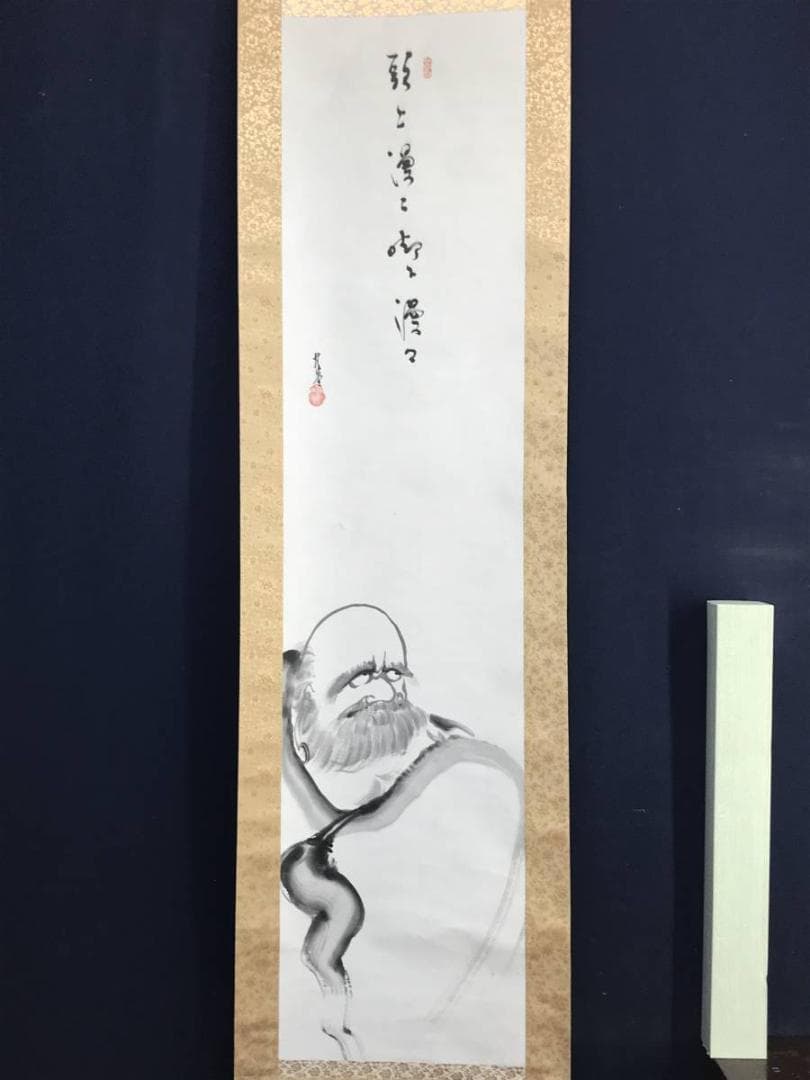 頭上漫々脚下漫々